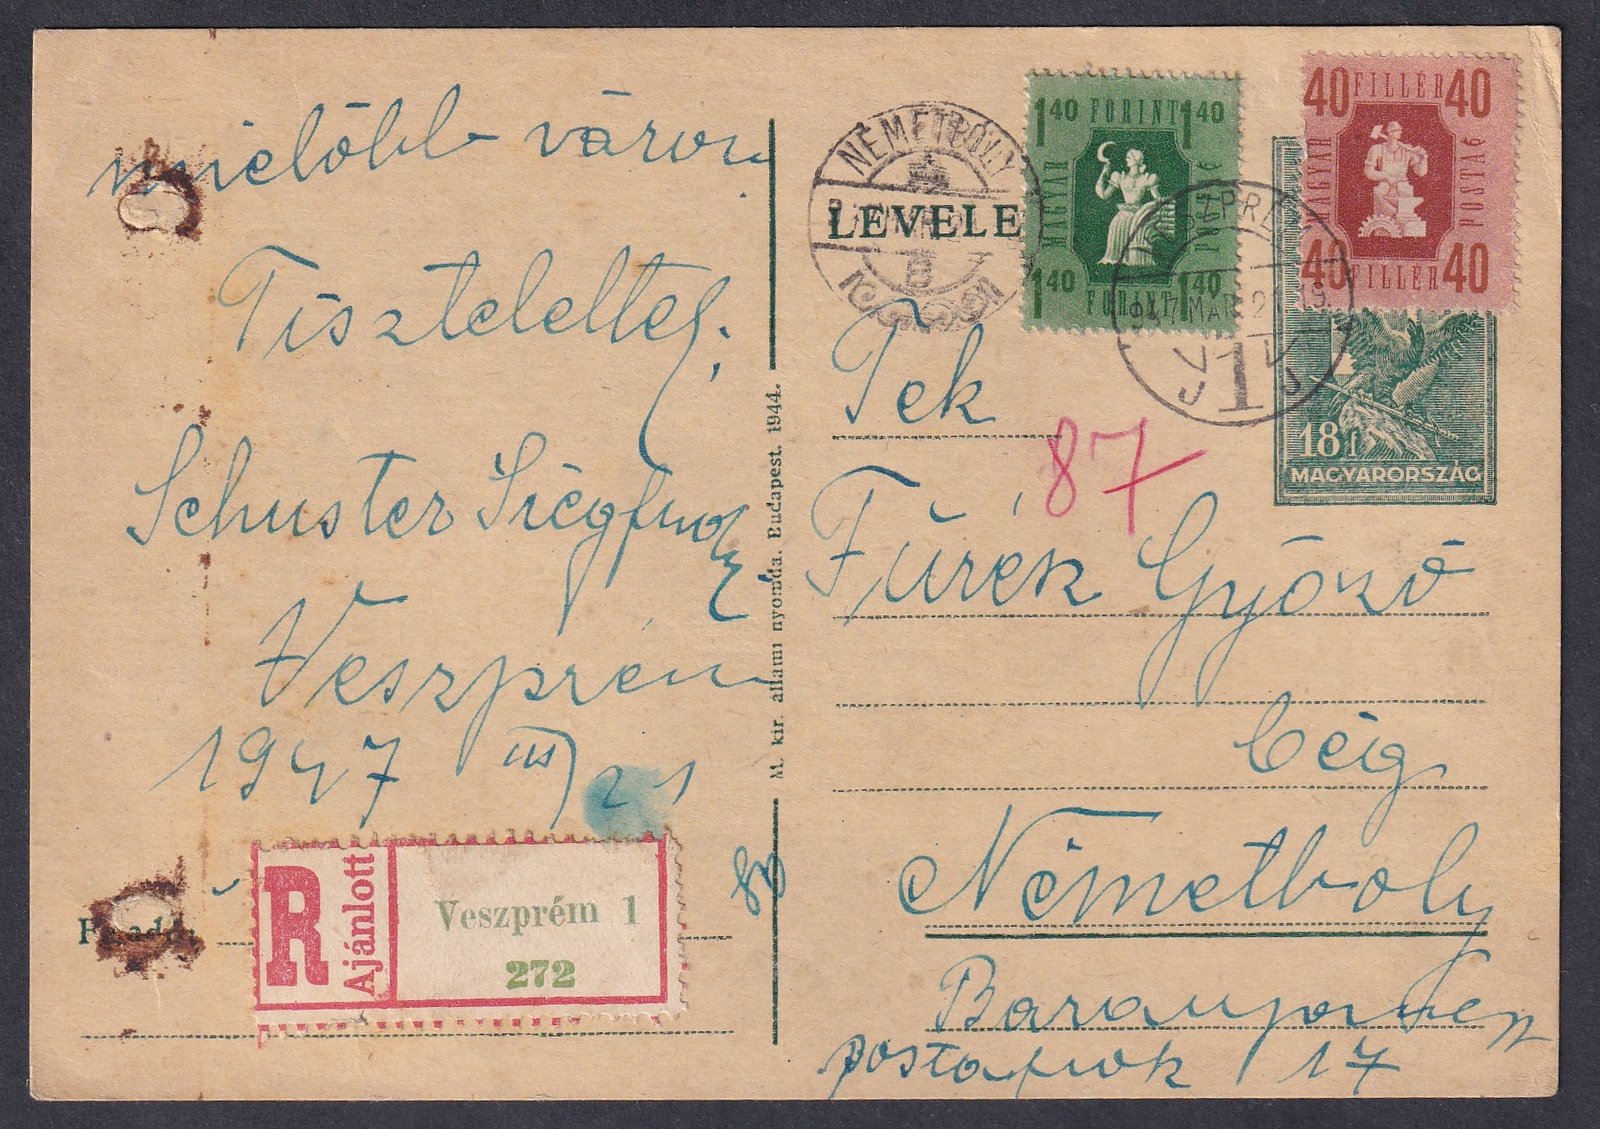 mielőbb várom
Tisztelettel:
Schuster
Veszprém
1947 III/21
Feladó:
R
Ajánlott
Veszprém 1
272
M. kir. állami nyomda. Budapest. 1944.
NÉMETBÓLY
LEVELE
1 40 FORINT 1 40
MAGYAR
POSTA
1 40 FORINT 1 40
VESZPRÉM
947 MAR 21
1
40 FILLÉR 40
MAGYAR
POSTA
40 FILLÉR 40
18 f
MAGYARORSZÁG
Tek
87
Fürék Győző
Cég
Németboly
Baranya
postafiok 17